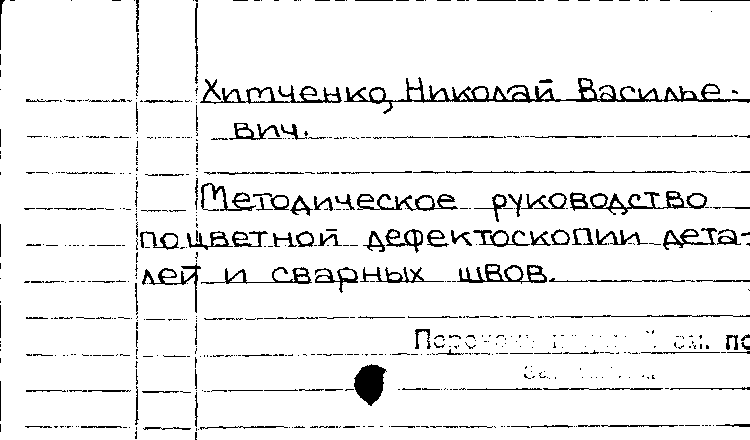 Хитченко, Николай Василье-
вич.
Методическое руководство
по цветной дефектоскопии дета-
лей и сварных швов.
см. по